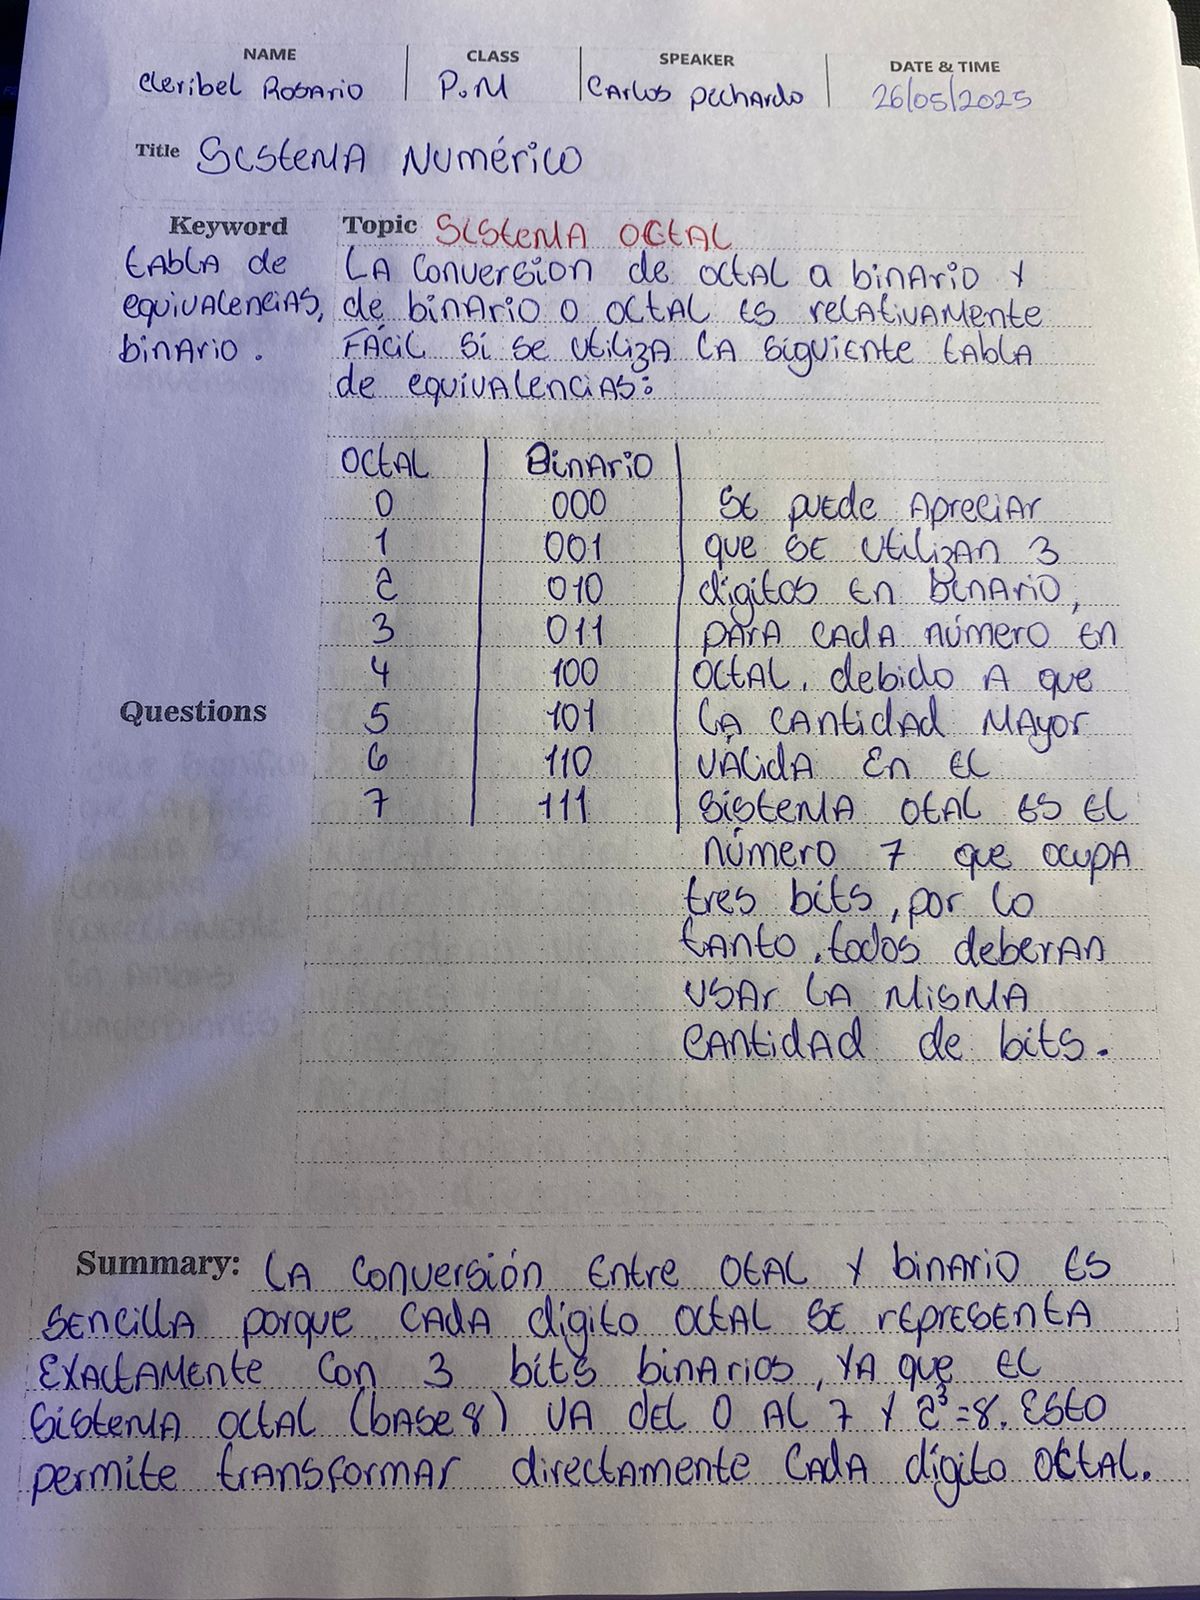 NAME CLASS SPEAKER DATE & TIME
Cleribel Rosario P.M Carlos Pichardo 26/05/2025
Title Sistema Numérico
Keyword
tabla de
equivalencias,
binario.
Topic Sistema Octal
La conversion de octal a binario y
de binario o octal es relativamente
Fácil si se utiliza la siguiente tabla
de equivalencias:
Octal Binario
0 000
1 001
2 010
3 011
4 100
5 101
6 110
7 111
Se puede Apreciar
que se utilizan 3
digitos en binario,
para cada número en
octal, debido a que
la cantidad mayor
válida en el
sistema otal es el
número 7 que ocupa
tres bits, por lo
tanto, todos deberan
usar la misma
cantidad de bits.
Questions
Summary: La conversión entre otal y binario es
sencilla porque cada dígito octal se representa
exactamente con 3 bits binarios, ya que el
sistema octal (base 8) va del 0 al 7 y 2³=8. Esto
permite transformar directamente cada dígito octal.